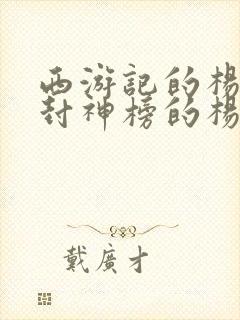 西游記的楊
封神榜的楊
戴廣才